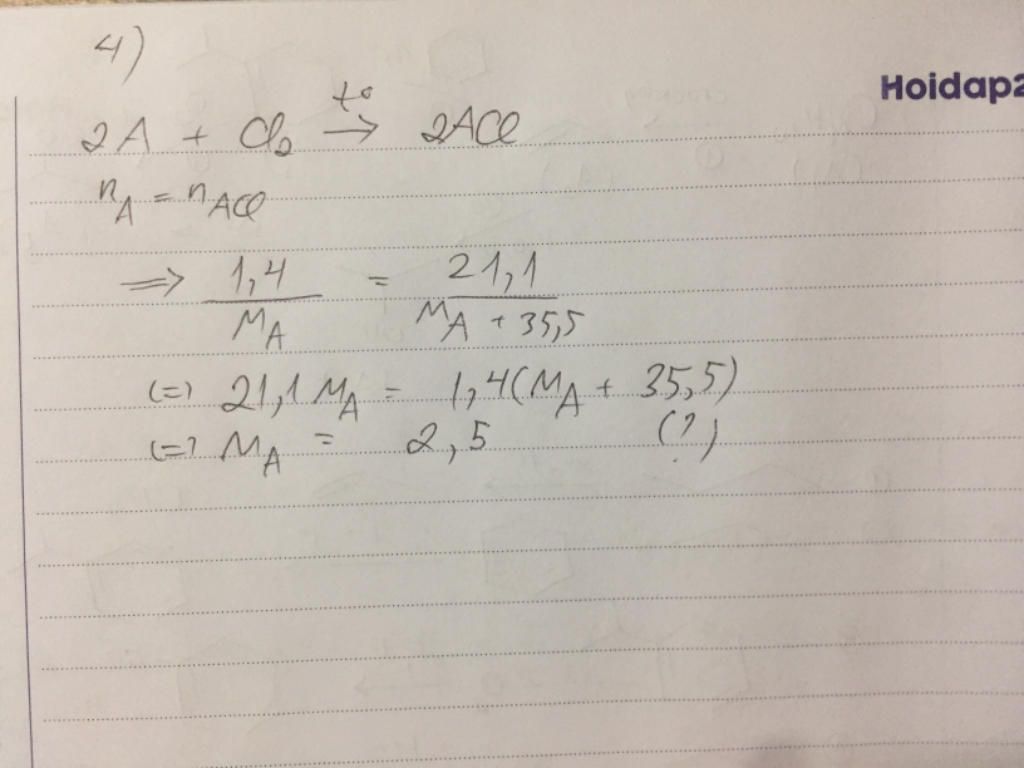 4)
Hoidap2
2A + Cl₂ →(t°) 2ACl
n_A = n_ACl
=> 1,4/M_A = 21,1/(M_A + 35,5)
(=) 21,1 M_A = 1,4(M_A + 35,5)
(=) M_A = 2,5 (?)